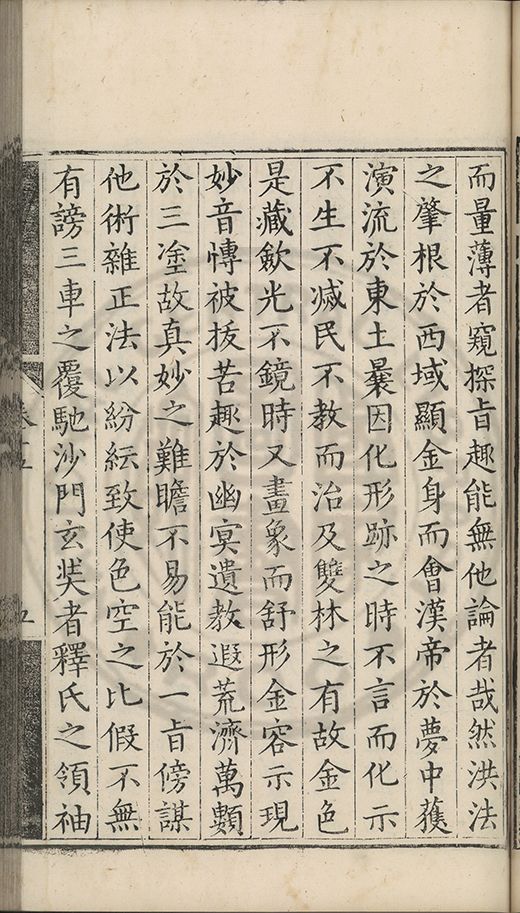 而量薄者窺探旨趣能無他論者哉然洪法
之肇根於西域顯金身而會漢帝於夢中蕪
演流於東土曩因化形跡之時不言而化示
不生不滅民不教而治及雙林之有故金色
是藏斂光不鏡時又畫象而舒形金容示現
妙音慱被拔苦趣於幽冥遺教遐荒濟萬類
於三塗故真妙之難瞻不易能於一旨傍謀
他術雜正法以紛紜致使色空之比假不無
有謗三車之覆馳沙門玄奘者釋氏之領袖